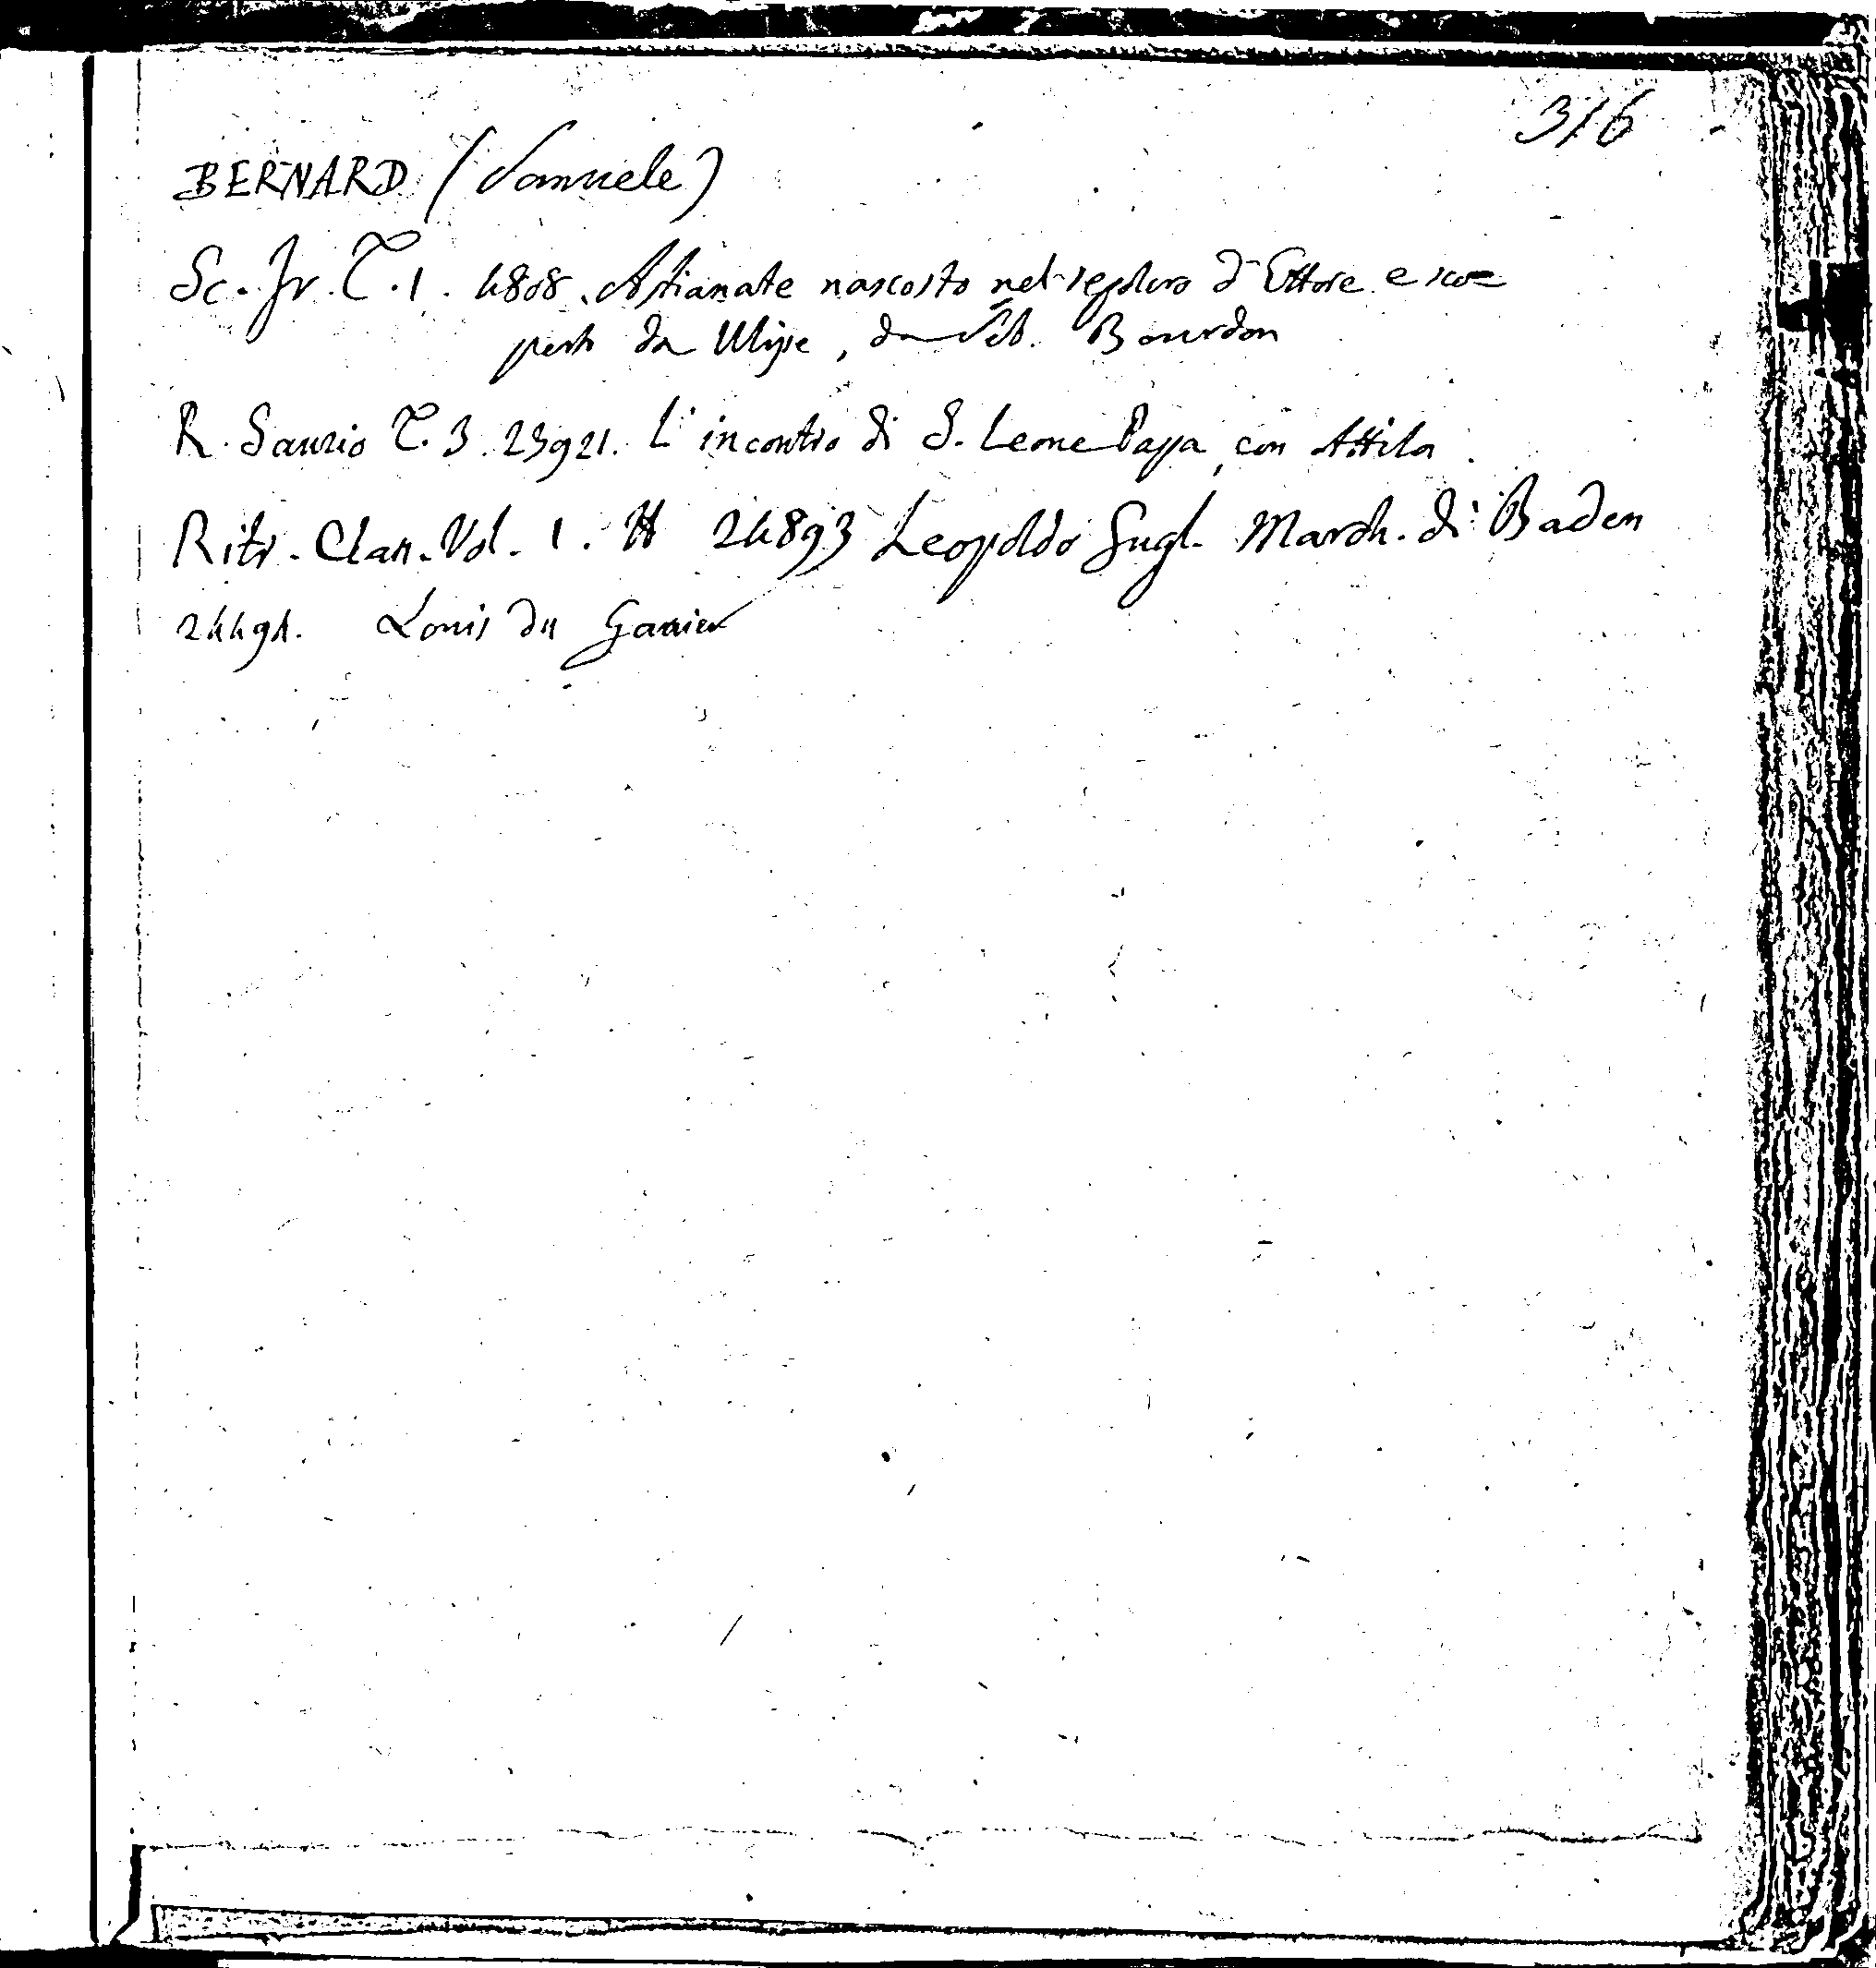 316
BERNARD (Samuele)
Sc. Fr. T. 1. 4808. Astianate nascosto nel sepolcro d'Ettore e sco=
perto da Ulisse, da Seb. Bourdon
R. Sanzio T. 3. 23921. L'incontro di S. Leone Papa, con Attila.
Ritr. Clas. Vol. 1. 24893 Leopoldo Gugl. March. di Baden
24491. Louis du